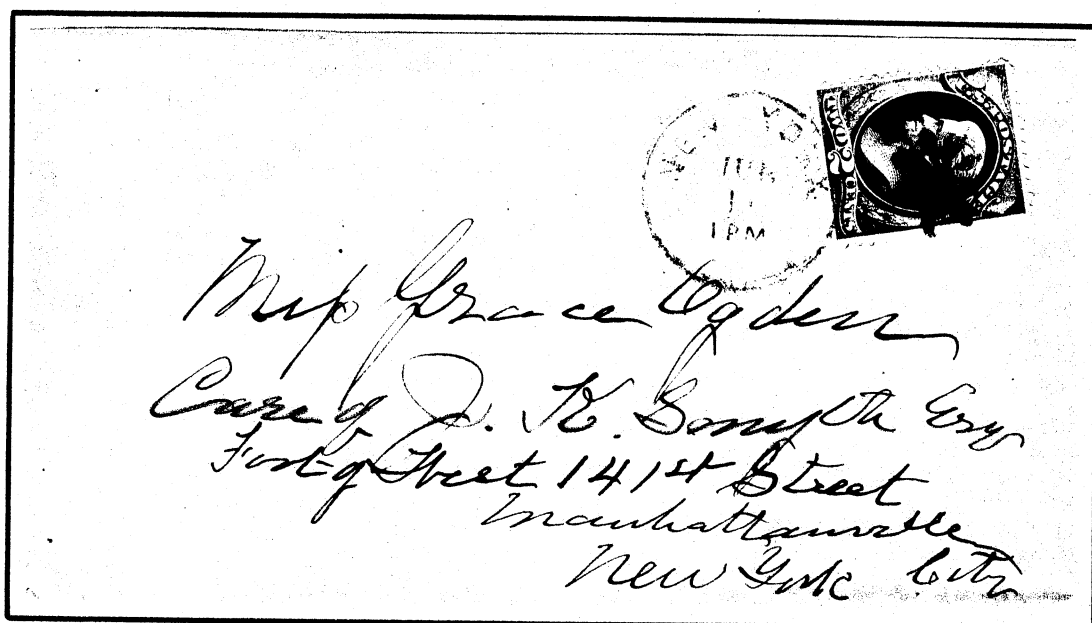 NEW YORK
1 PM
U.S. POSTAGE
TWO 2 CENTS
Miss Grace Ogden
Care of J. K. Smyth Esq
Foot of West 141st Street
Manhattanville
New York City